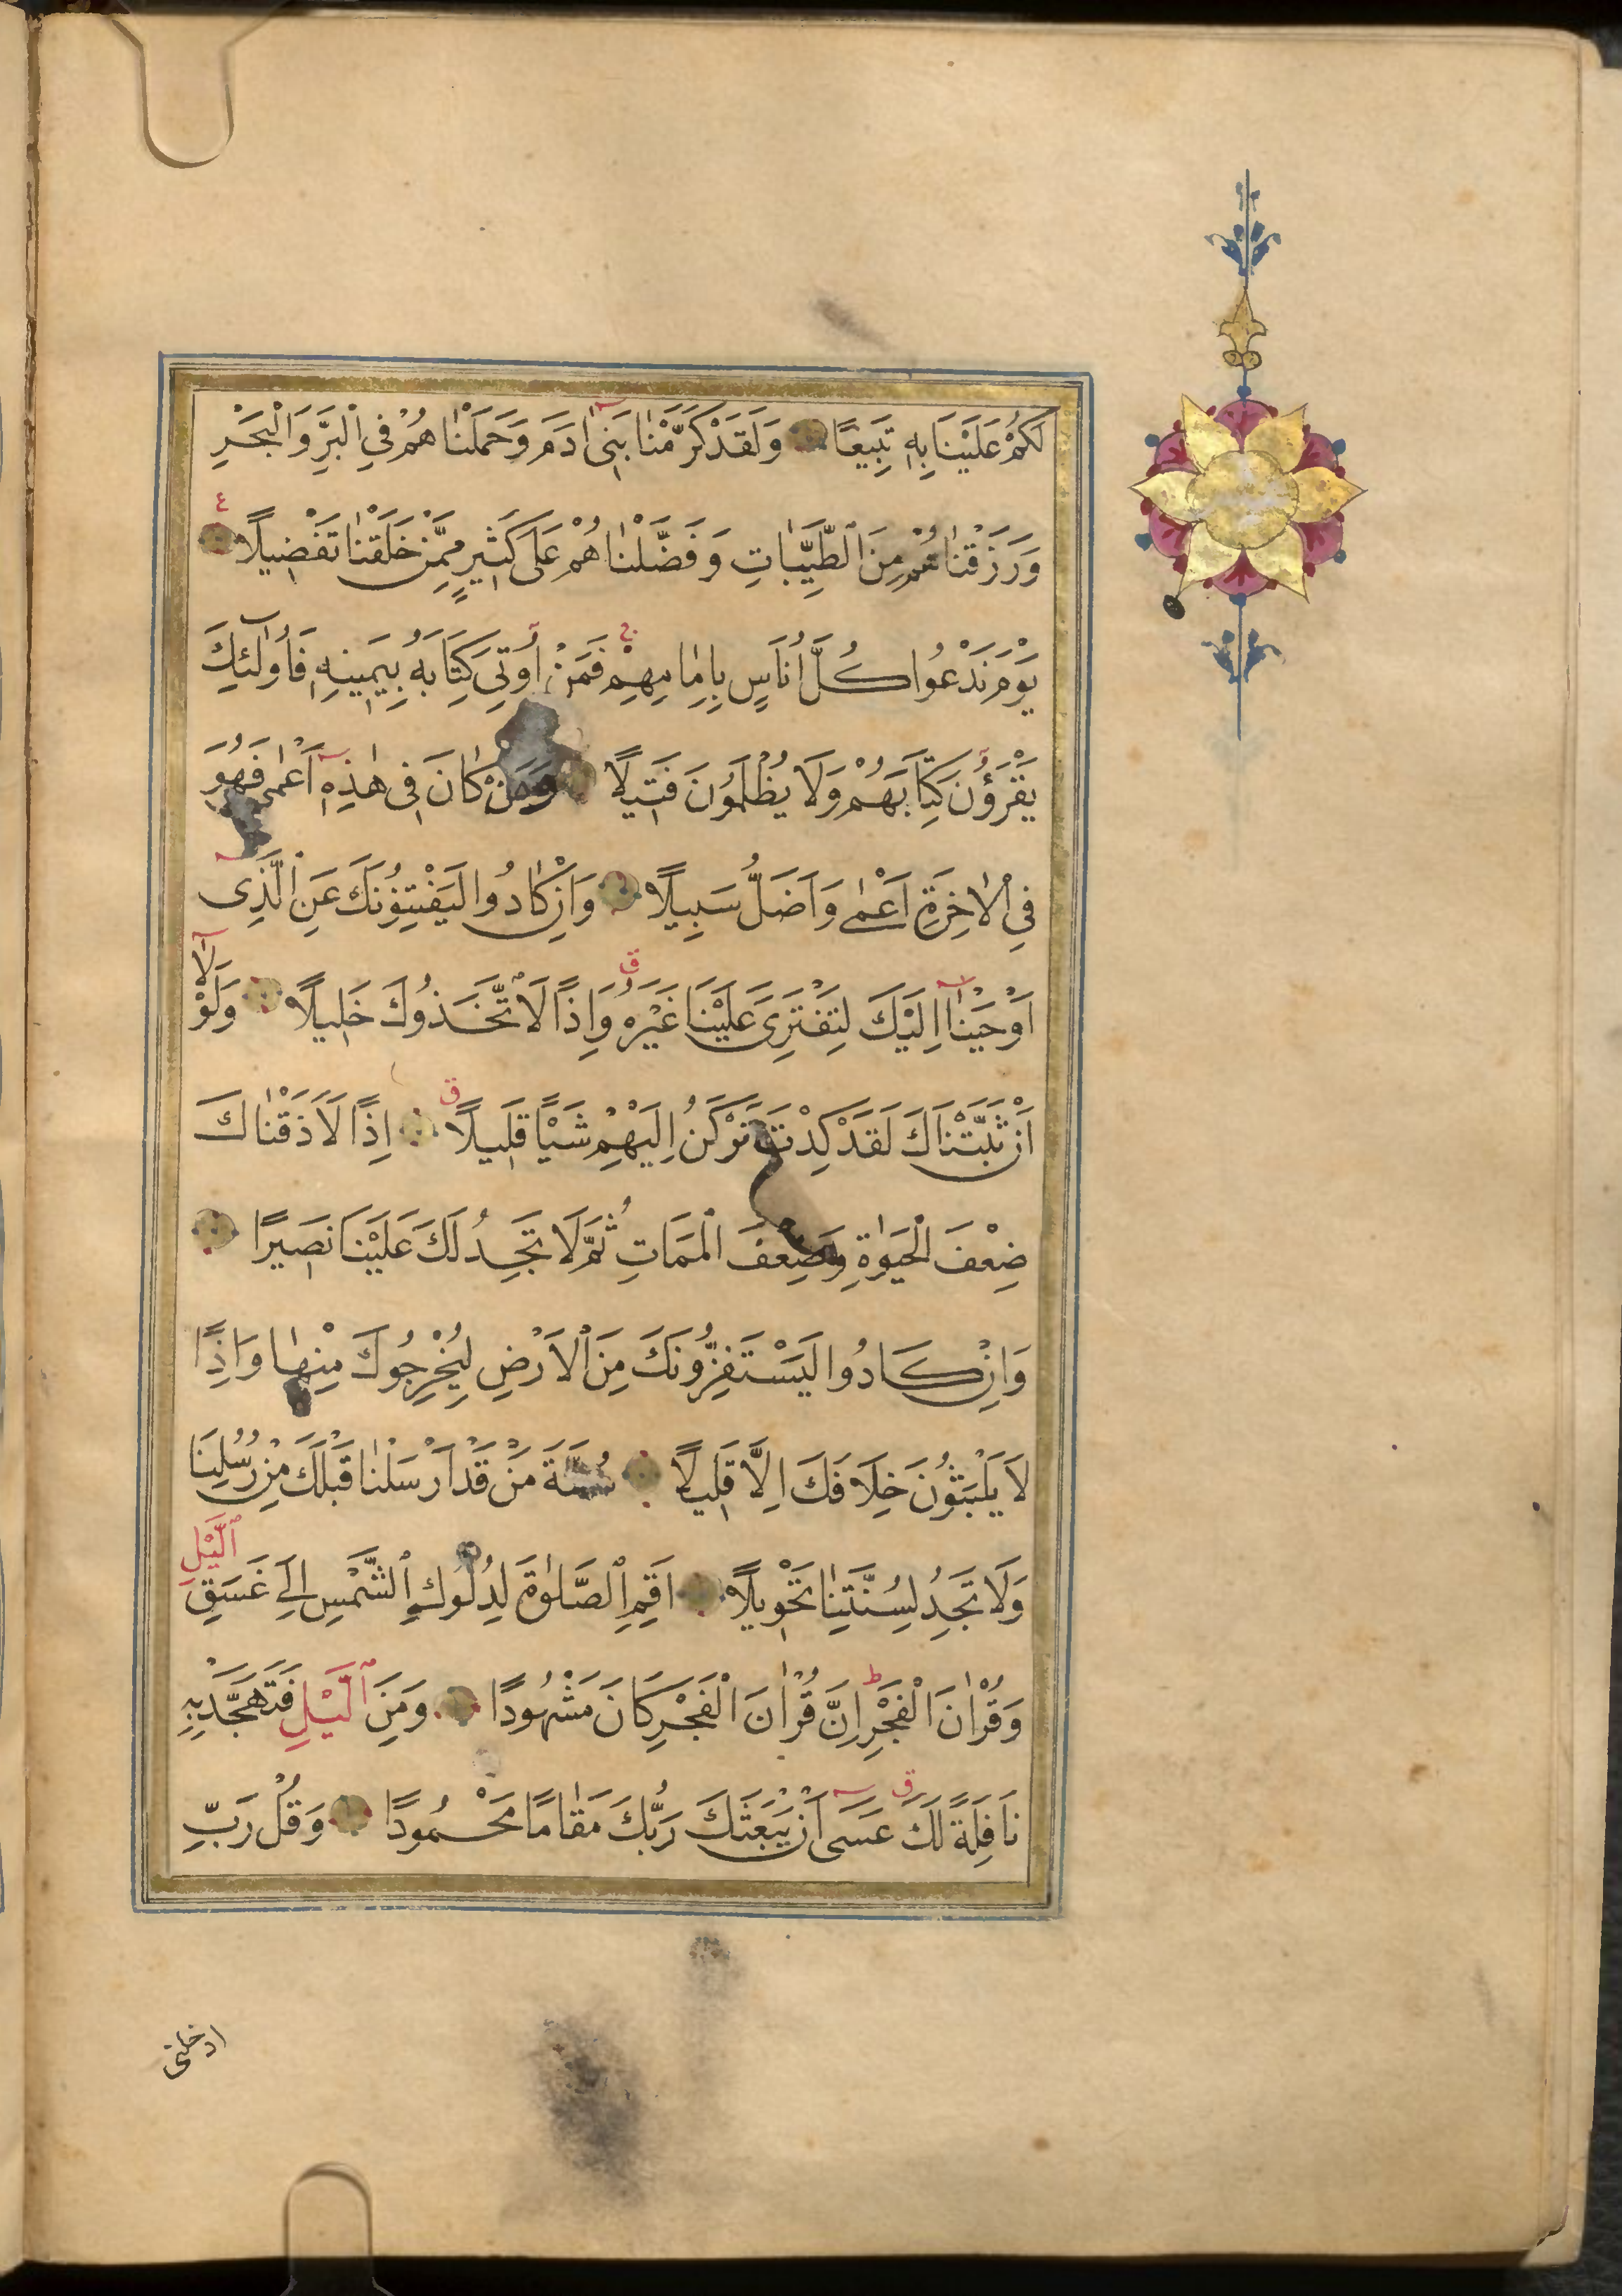 لَكُمْ عَلَيْنَا بِهٖ تَبِيعًا وَلَقَدْ كَرَّمْنَا بَنِىٓ اٰدَمَ وَحَمَلْنَاهُمْ فِى الْبَرِّ وَالْبَحْرِ
وَرَزَقْنَاهُمْ مِنَ الطَّيِّبَاتِ وَفَضَّلْنَاهُمْ عَلٰى كَثِيرٍ مِمَّنْ خَلَقْنَا تَفْضِيلًا ع
يَوْمَ نَدْعُوا كُلَّ اُنَاسٍ بِاِمَامِهِمْ ج فَمَنْ اُوتِىَ كِتَابَهُ بِيَمِينِهٖ فَاُولٰٓئِكَ
يَقْرَؤُنَ كِتَابَهُمْ وَلَا يُظْلَمُونَ فَتِيلًا وَمَنْ كَانَ فِى هٰذِهٖٓ اَعْمٰى فَهُوَ
فِى الْاٰخِرَةِ اَعْمٰى وَاَضَلُّ سَبِيلًا وَاِنْ كَادُوا لَيَفْتِنُونَكَ عَنِ الَّذِىٓ
اَوْحَيْنَآ اِلَيْكَ لِتَفْتَرِىَ عَلَيْنَا غَيْرَهُ ق وَاِذًا لَاتَّخَذُوكَ خَلِيلًا وَلَوْلَآ
اَنْ ثَبَّتْنَاكَ لَقَدْ كِدْتَ تَرْكَنُ اِلَيْهِمْ شَيْـًٔا قَلِيلًا ق اِذًا لَاَذَقْنَاكَ
ضِعْفَ الْحَيٰوةِ وَضِعْفَ الْمَمَاتِ ثُمَّ لَا تَجِدُ لَكَ عَلَيْنَا نَصِيرًا
وَاِنْ كَادُوا لَيَسْتَفِزُّونَكَ مِنَ الْاَرْضِ لِيُخْرِجُوكَ مِنْهَا وَاِذًا
لَا يَلْبَثُونَ خِلَافَكَ اِلَّا قَلِيلًا سُنَّةَ مَنْ قَدْ اَرْسَلْنَا قَبْلَكَ مِنْ رُسُلِنَا
وَلَا تَجِدُ لِسُنَّتِنَا تَحْوِيلًا اَقِمِ الصَّلٰوةَ لِدُلُوكِ الشَّمْسِ اِلٰى غَسَقِ الَّيْلِ
وَقُرْاٰنَ الْفَجْرِ ط اِنَّ قُرْاٰنَ الْفَجْرِ كَانَ مَشْهُودًا وَمِنَ الَّيْلِ فَتَهَجَّدْ بِهٖ
نَافِلَةً لَكَ ق عَسٰىٓ اَنْ يَبْعَثَكَ رَبُّكَ مَقَامًا مَحْمُودًا وَقُلْ رَبِّ
ادخلنى